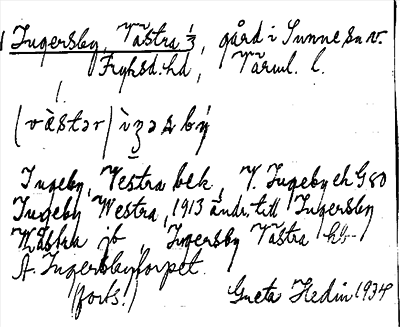 Ingersby, Västra 1/3, gård i Sunne sn v.
Fryksd. hd, Värml. l.
(vàstər) ìʒəsbý
Ingeby, Vestra bek, V. Ingeby ek G80
Ingeby Westra, 1913 ändr. till Ingersby
Västra jb, Ingersby Västra
A. Ingersbytorpet
(forts.) Greta Hedin 1934